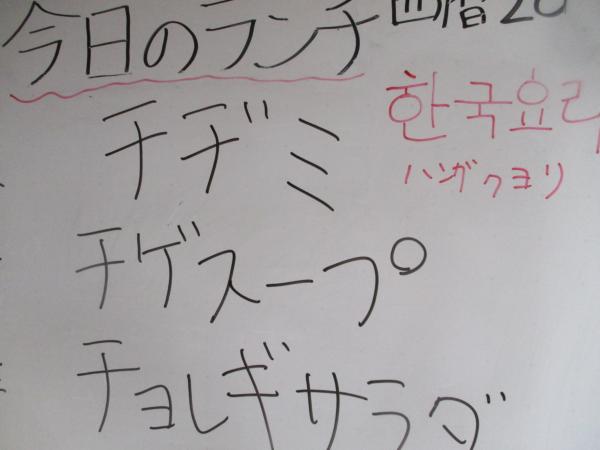 今日のランチ 西暦20
한국요리
ハングクヨリ
チヂミ
チゲスープ
チョレギサラダ